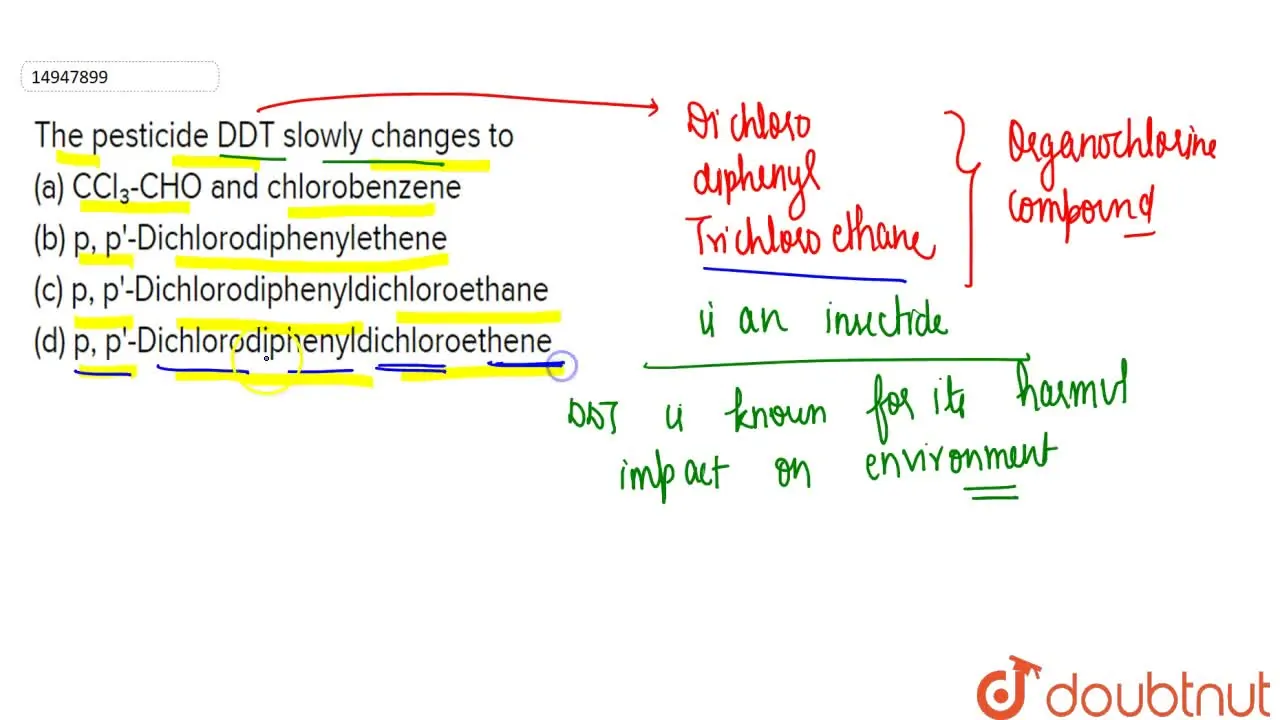 14947899
The pesticide DDT slowly changes to
(a) CCl₃-CHO and chlorobenzene
(b) p, p'-Dichlorodiphenylethene
(c) p, p'-Dichlorodiphenyldichloroethane
(d) p, p'-Dichlorodiphenyldichloroethene
Dichloro
diphenyl
Trichloro ethane
Organochlorine
compound
is an insectide
DDT is known for its harmul
impact on environment
doubtnut